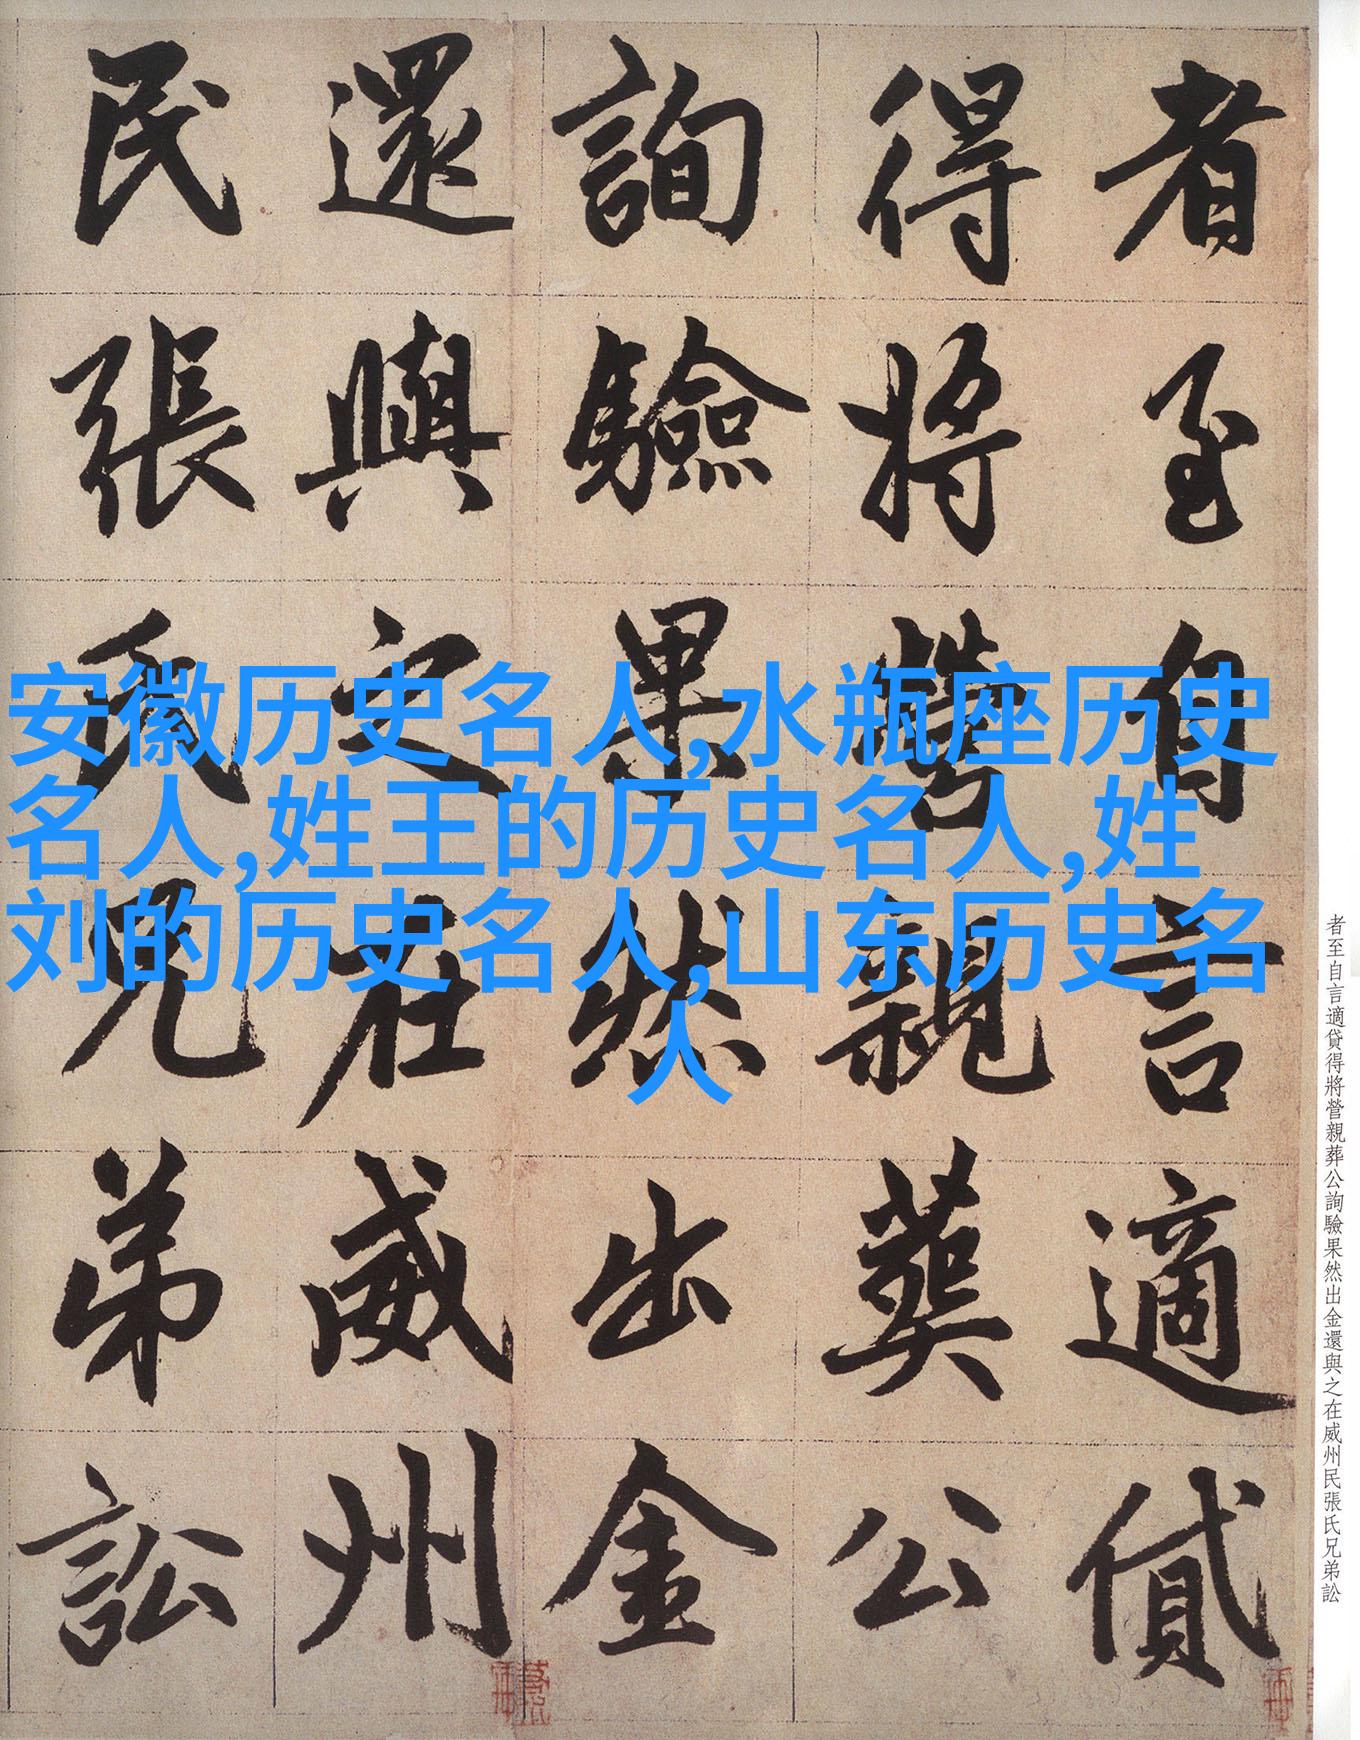 者至自言適貸
得將營親葬公
詢驗果然出金
還與之在威州
民張氏兄弟訟
安徽历史名人,水瓶座历史
名人,姓王的历史名人,姓
刘的历史名人,山东历史名
人
者至自言適貸得將營親葬公詢驗果然出金還與之在威州民張氏兄弟訟